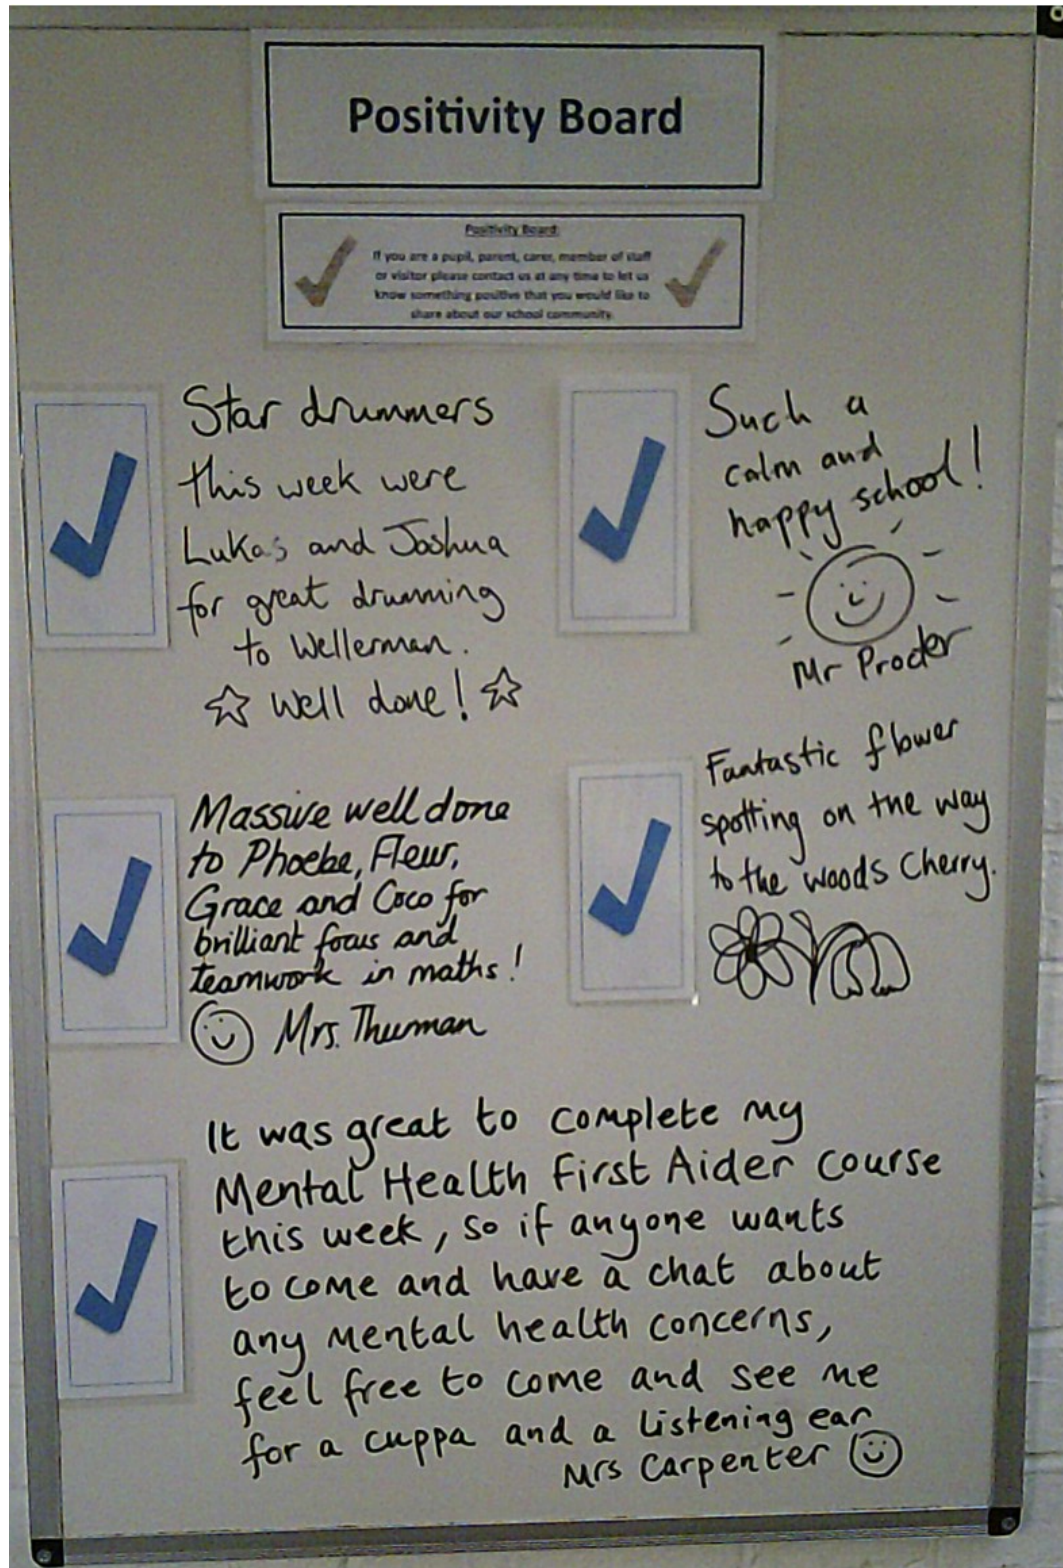 Positivity Board
Positivity Board
If you are a pupil, parent, carer, member of staff
or visitor please contact us at any time to let us
know something positive that you would like to
share about our school community.
Star drummers
this week were
Lukas and Joshua
for great drumming
to Wellerman.
Well done!
Such a
calm and
happy school!
Mr Procter
Massive well done
to Phoebe, Fleur,
Grace and Coco for
brilliant focus and
teamwork in maths!
Mrs. Thurman
Fantastic flower
spotting on the way
to the woods Cherry.
It was great to complete my
Mental Health First Aider course
this week, so if anyone wants
to come and have a chat about
any mental health concerns,
feel free to come and see me
for a cuppa and a listening ear
Mrs Carpenter